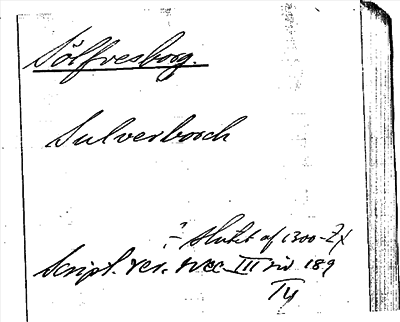 Sölfvesborg.
Sulverborch
slutet af 1300-t
Script. rer. svec. III sid. 189
Ty